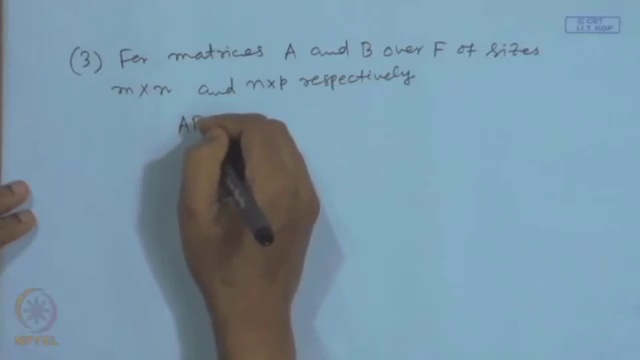 © CET
I.I.T. KGP
(3) For matrices A and B over F of sizes
m×n and n×p respectively
AB
NPTEL